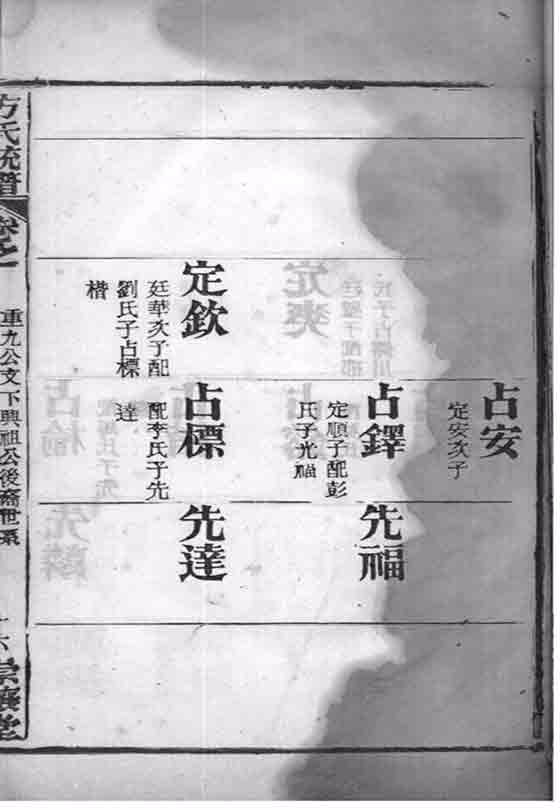 占安
定安次子
占鐸
定順子配彭
氏子光福
先福
定欽
廷華次子配
劉氏子占標
楷
占標
配李氏子先
達
先達
方氏統譜
卷之
重九公文下興祖公後裔世系